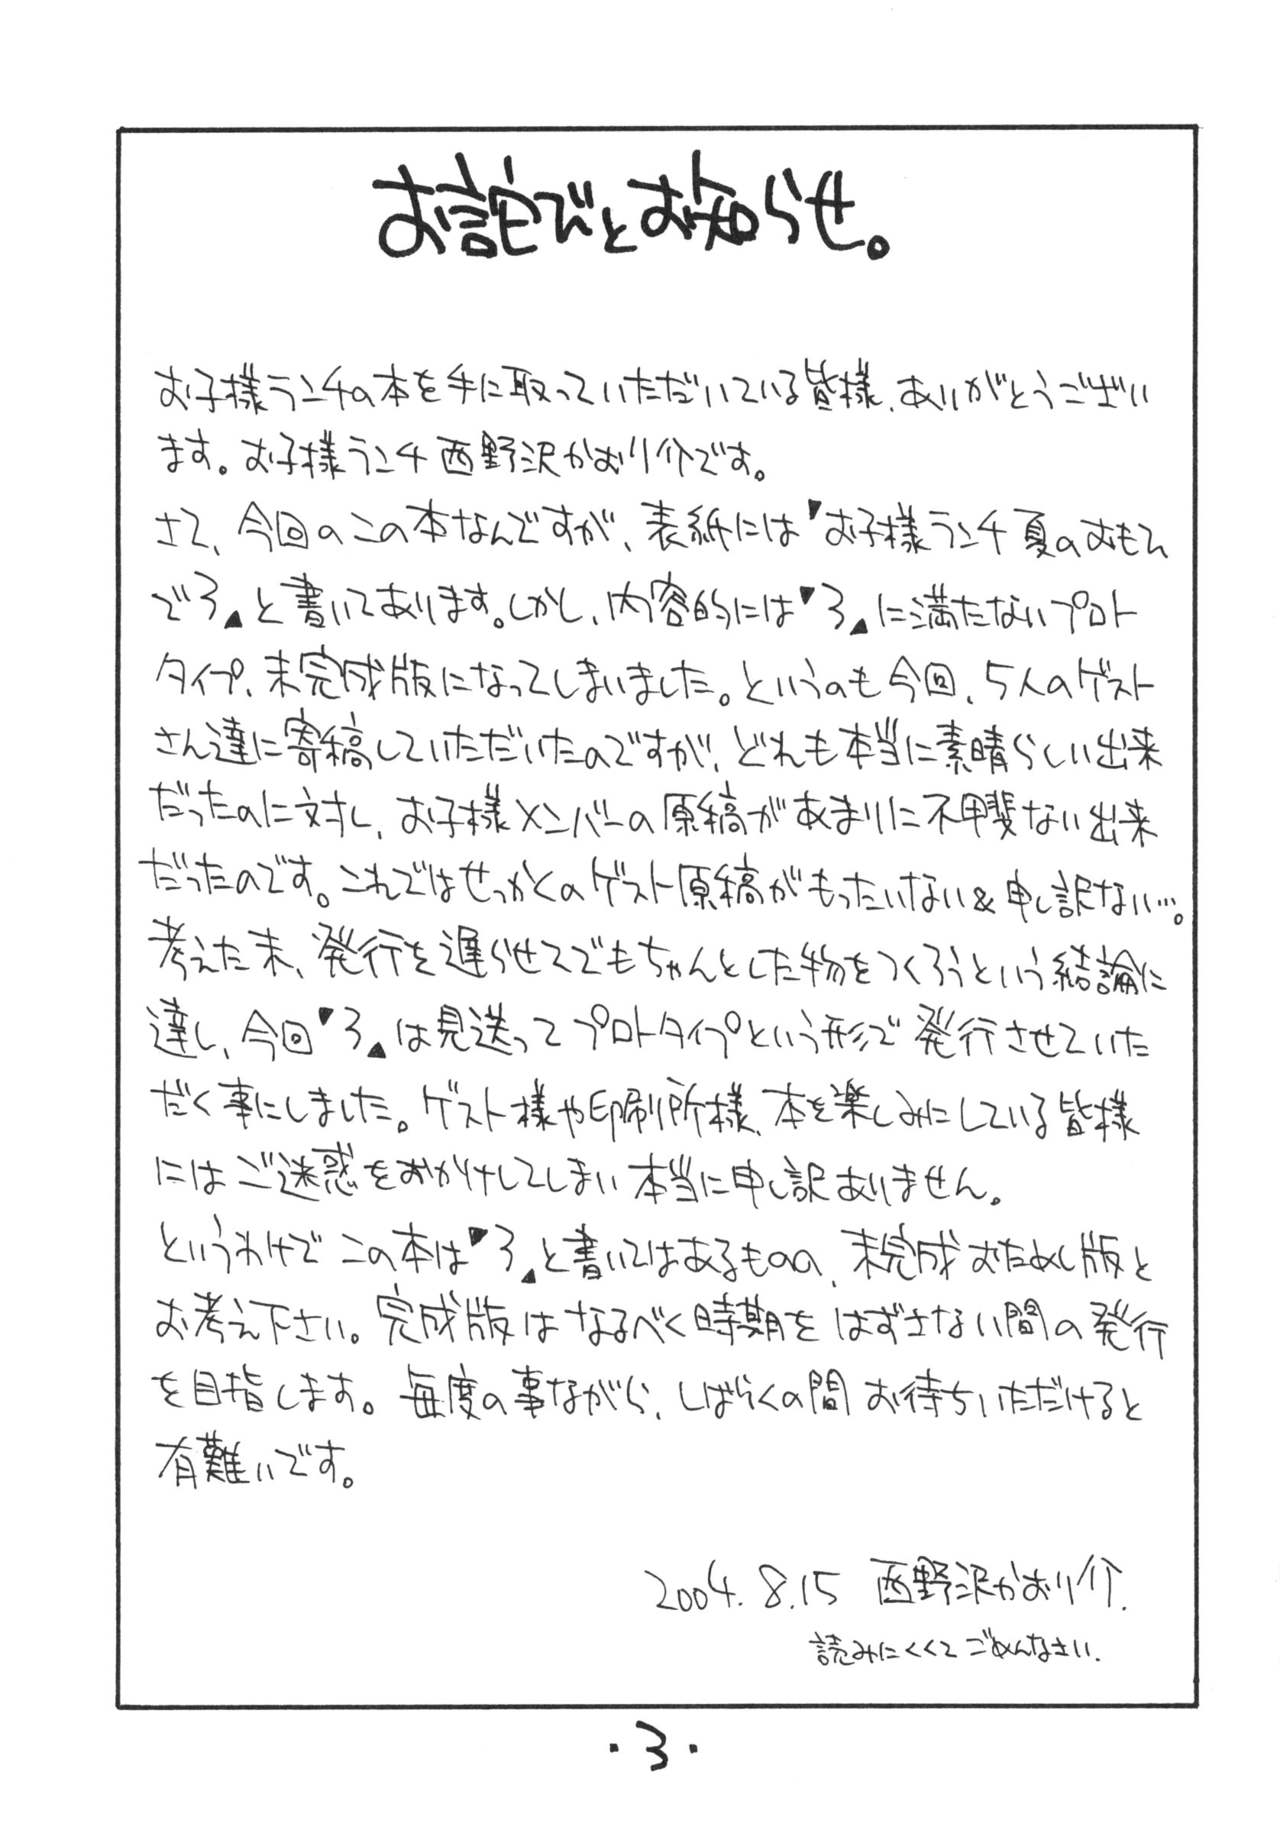 お詫びとお知らせ。
お子様ランチの本を手に取っていただいている皆様、ありがとうござい
ます。お子様ランチ西野沢かおり介です。
さて、今回のこの本なんですが、表紙には『お子様ランチ夏のおもひ
で3』と書いてあります。しかし、内容的には『3』に満たないプロト
タイプ、未完成版になってしまいました。というのも今回、5人のゲスト
さん達に寄稿していただいたのですが、どれも本当に素晴らしい出来
だったのに対し、お子様メンバーの原稿があまりに不甲斐ない出来
だったのです。これではせっかくのゲスト原稿がもったいない&申し訳ない…。
考えた末、発行を遅らせてでもちゃんとした物をつくろうという結論に
達し、今回『3』は見送ってプロトタイプという形で発行させていた
だく事にしました。ゲスト様や印刷所様、本を楽しみにしている皆様
にはご迷惑をおかけしてしまい本当に申し訳ありません。
というわけでこの本は『3』と書いてはあるものの、未完成おためし版と
お考え下さい。完成版はなるべく時期をはずさない間の発行
を目指します。毎度の事ながら、しばらくの間お待ちいただけると
有難いです。
2004.8.15 西野沢かおり介.
読みにくくてごめんなさい.
・3・